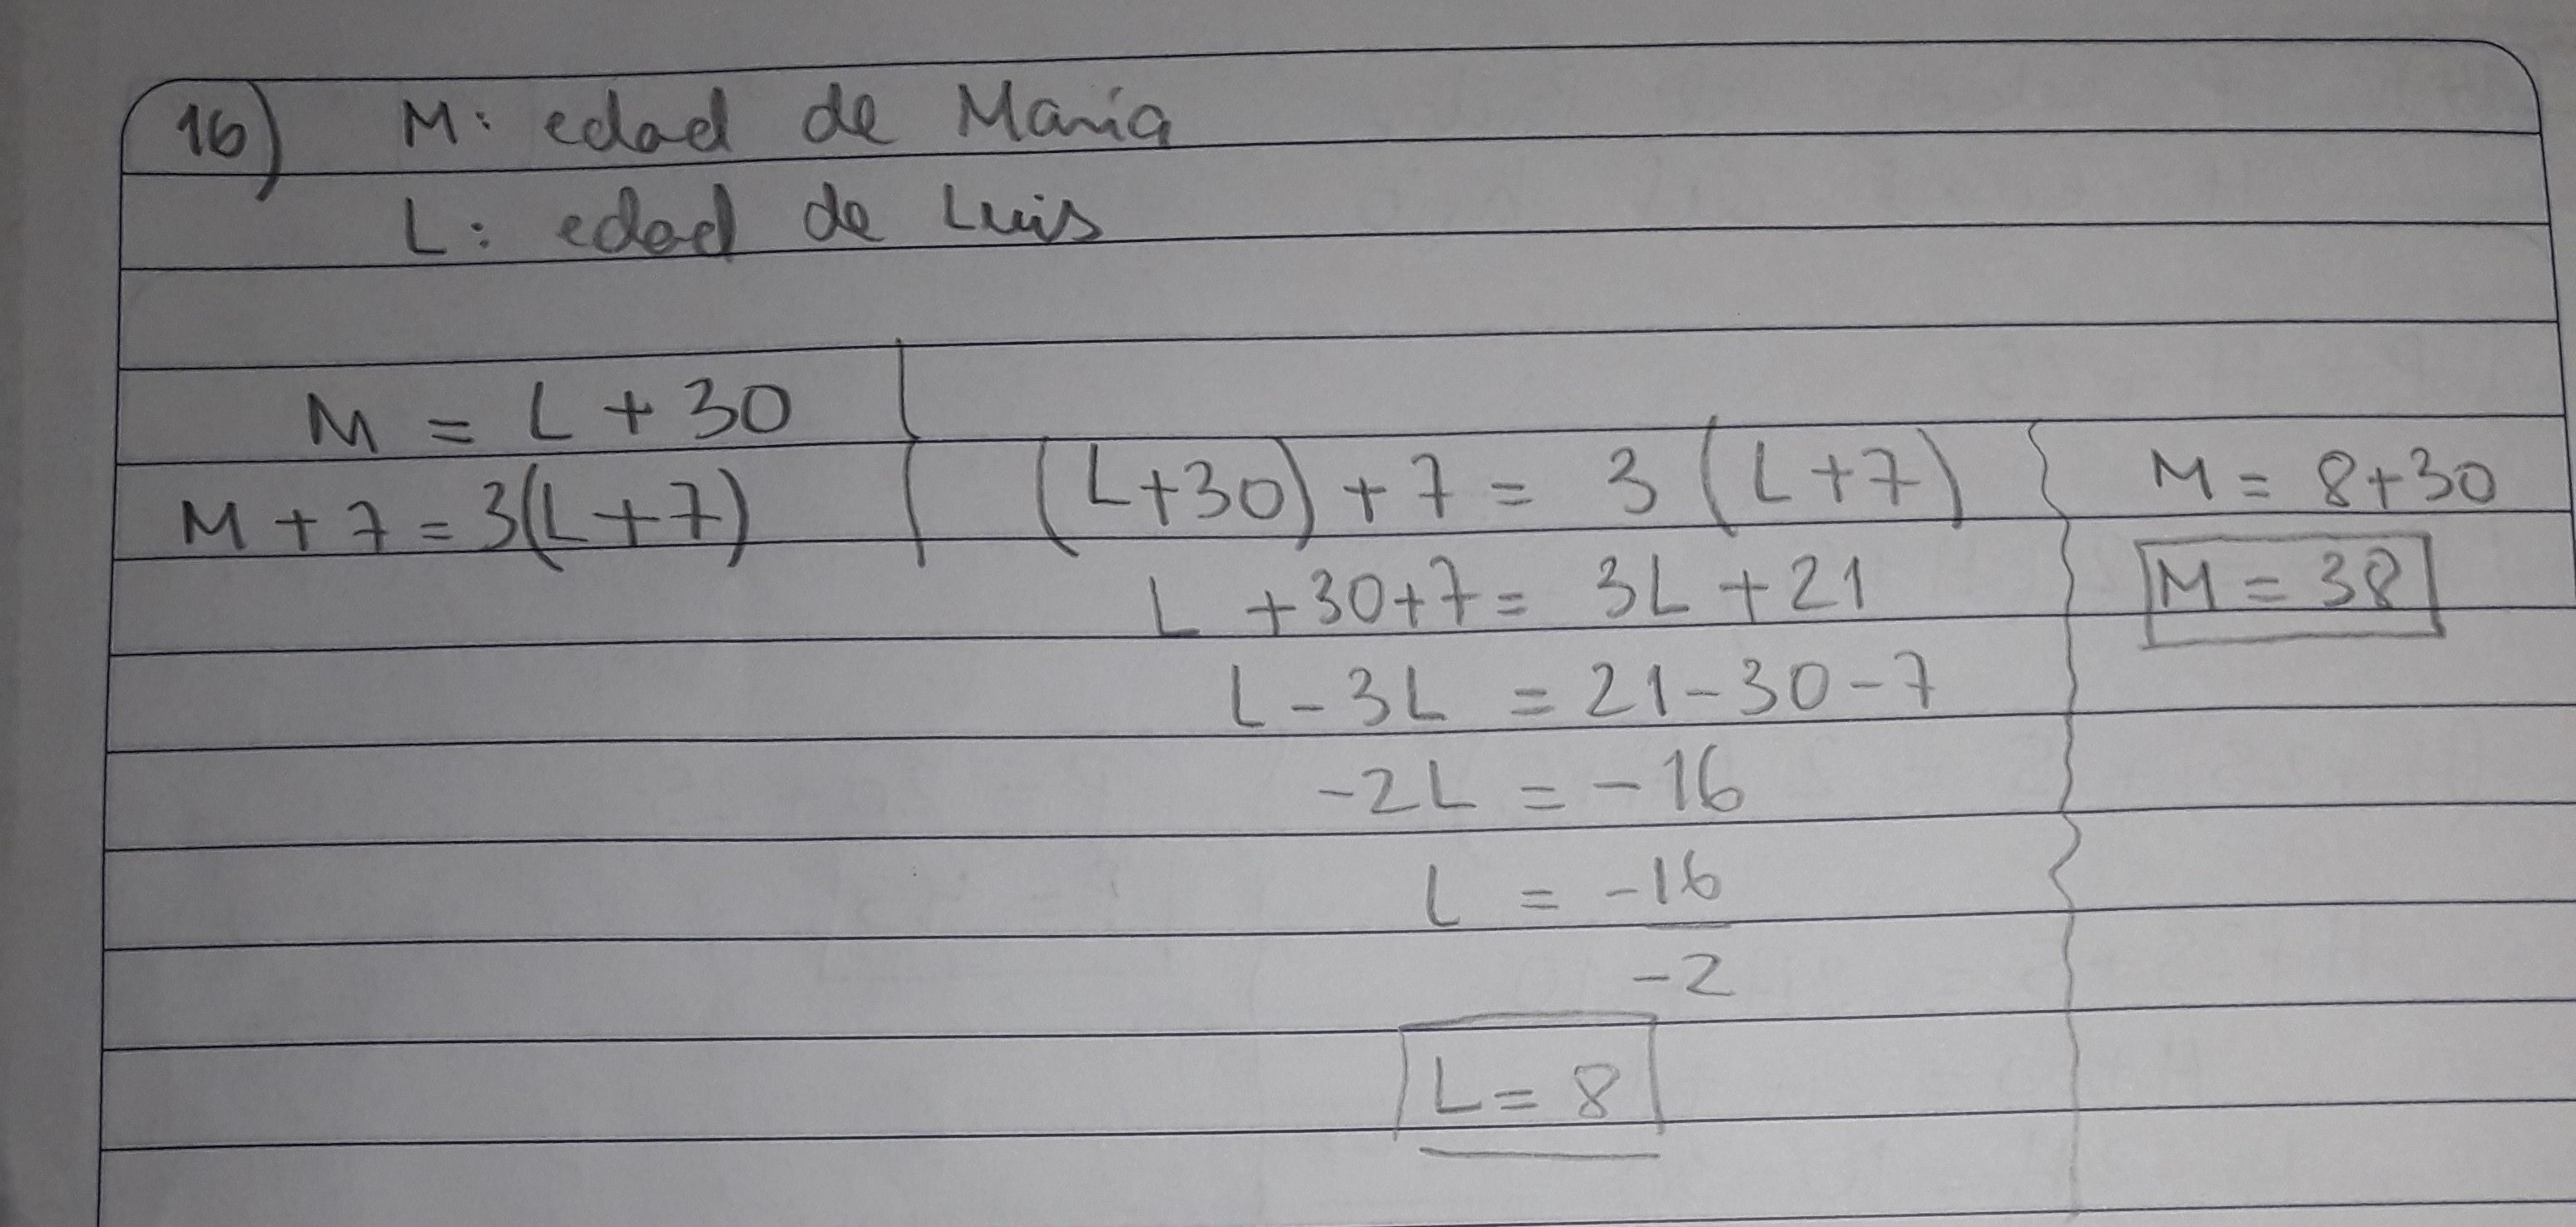 16) M: edad de María
L: edad de Luis
M = L + 30
M + 7 = 3(L + 7)
(L+30) + 7 = 3 (L+7)
L +30+7 = 3L +21
L - 3L = 21-30-7
-2L = -16
L = -16
-2
L = 8
M = 8+30
M = 38